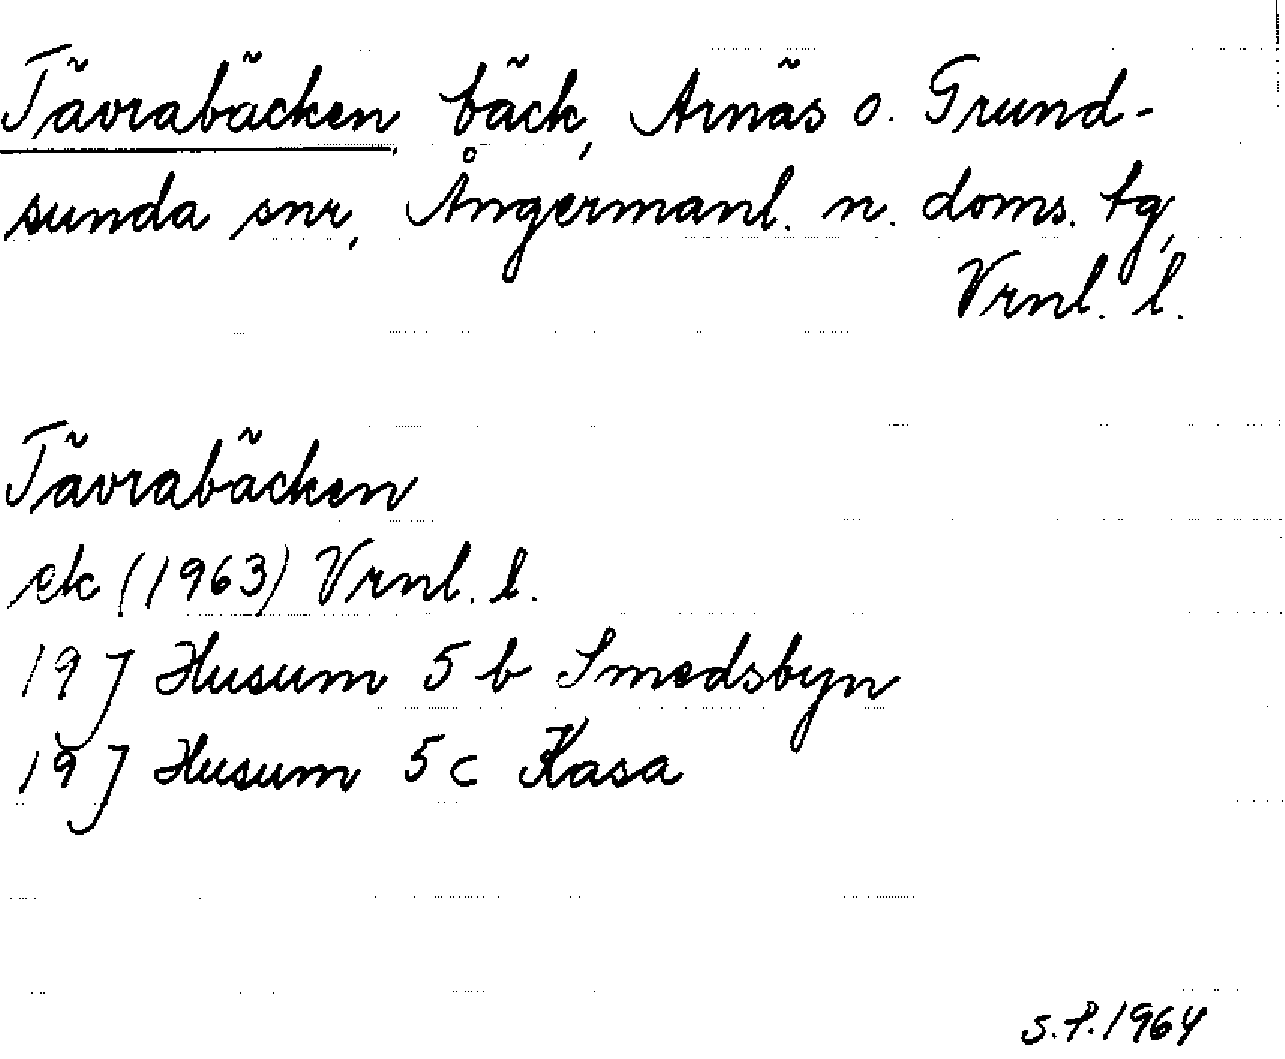 Tävrabäcken, bäck, Arnäs o. Grund-
sunda snr, Ångermanl. n. doms. tg,
Vrnl. l.
Tävrabäcken
ek (1963) Vrnl. l.
19 J Husum 5 b Smedsbyn
19 J Husum 5 c Kasa
S.P. 1964